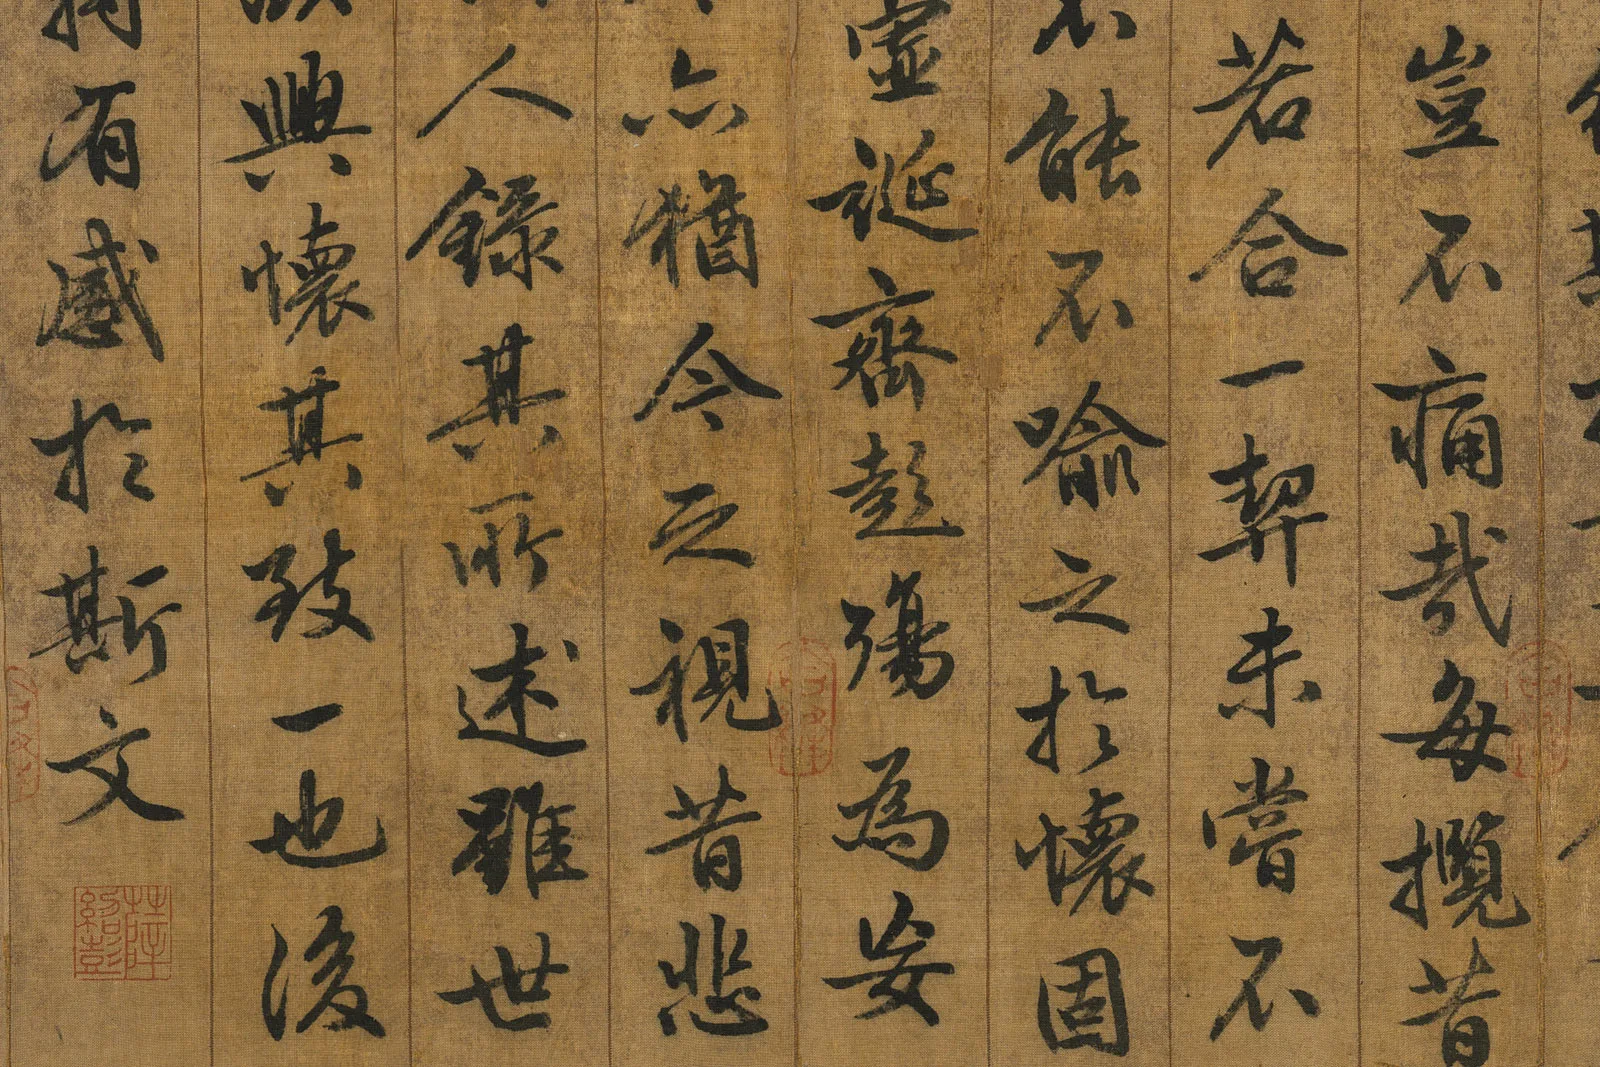 豈不痛哉每攬昔
若合一契未嘗不
不能不喻之於懷固
虛誕齊彭殤為妄
亦猶今之視昔悲
人錄其所述雖世
興懷其致一也後
有感於斯文
薛紹彭